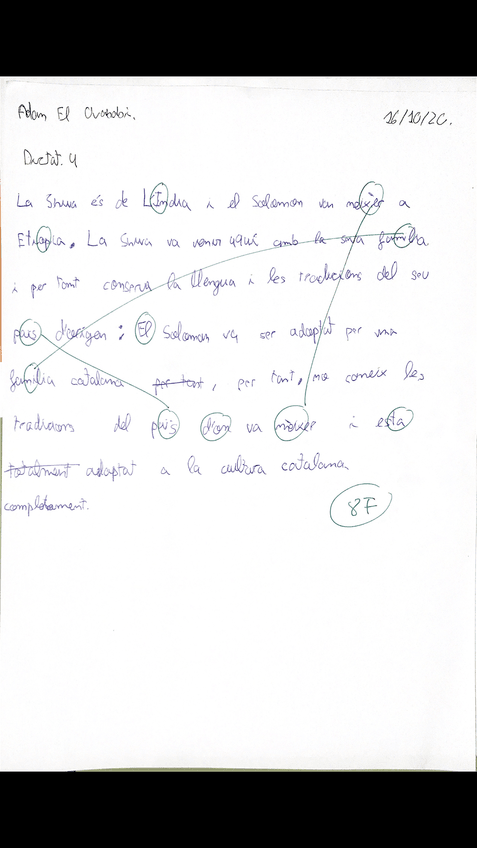 Adam El
16/10/20.
Dictat. 4
La Shiva és de L'India i el Solomon van néixer a
Etiopia. La Shiva va venir aquí amb la seva familia
i per tant conserva la llengua i les tradicions del seu
pais d'origen: El Solomon va ser adoptat per una
familia catalana per tant, per tant, no coneix les
tradicions del pais d'on va néixer i esta
totalment adaptat a la cultura catalana
completament.
8F